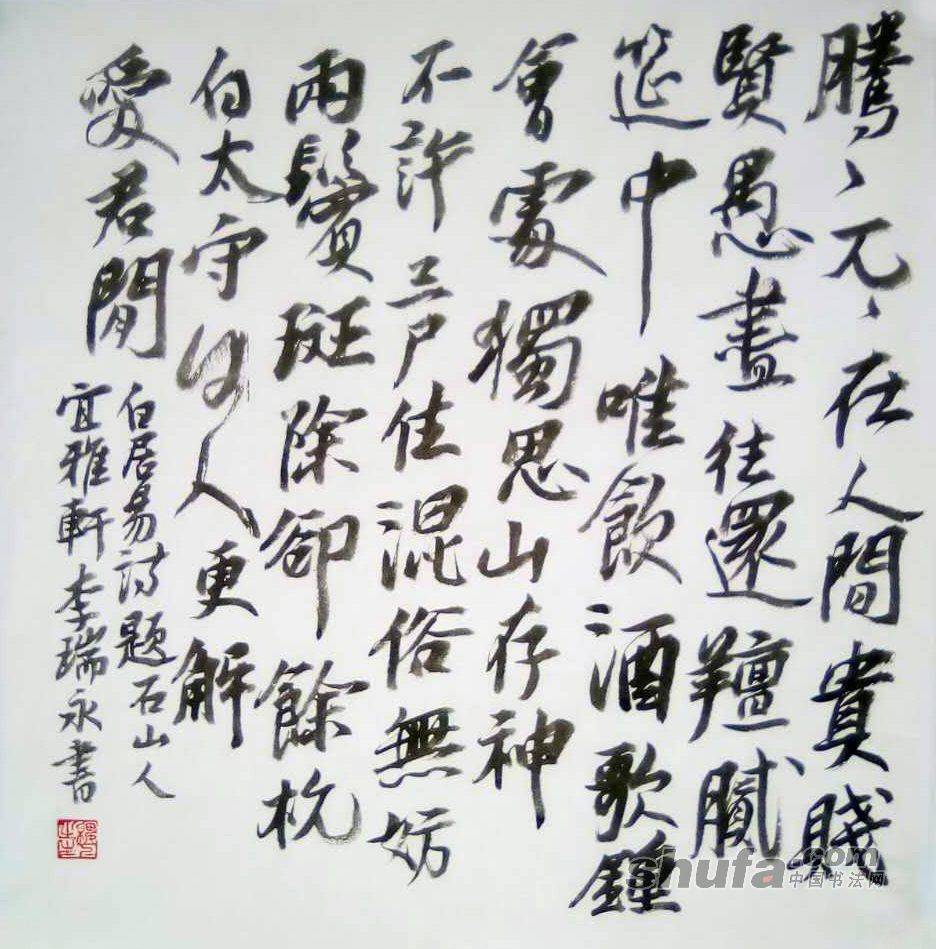 騰〻兀〻在人間貴賤
賢愚盡往還羶膩
筵中唯飲酒歌鐘
會處獨思山存神
不許三尸住混俗無妨
兩鬢斑除卻餘杭
白太守何人更解
愛君閒
白居易詩題石山人
宜雅軒李瑞永書
shufa.com
中国书法网